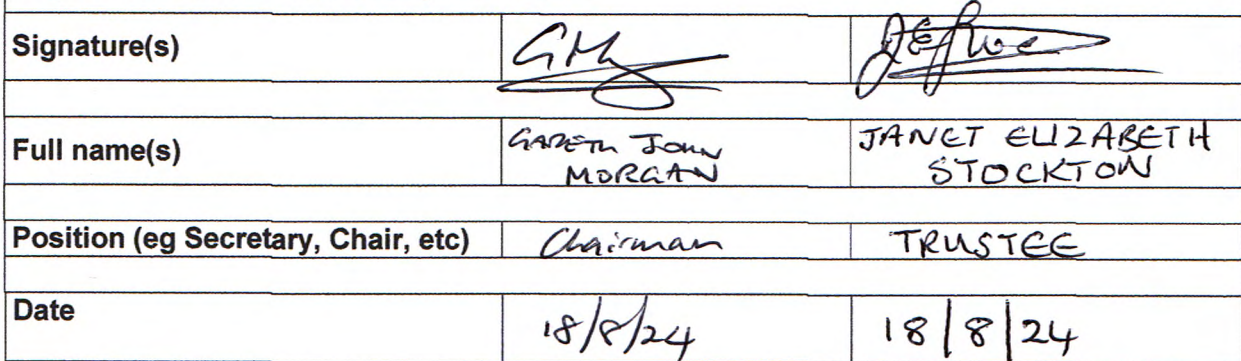 Signature(s)
Full name(s) GARETH JOHN JANET ELIZABETH
MORGAN STOCKTON
Position (eg Secretary, Chair, etc) Chairman TRUSTEE
Date 18/8/24 18/8/24